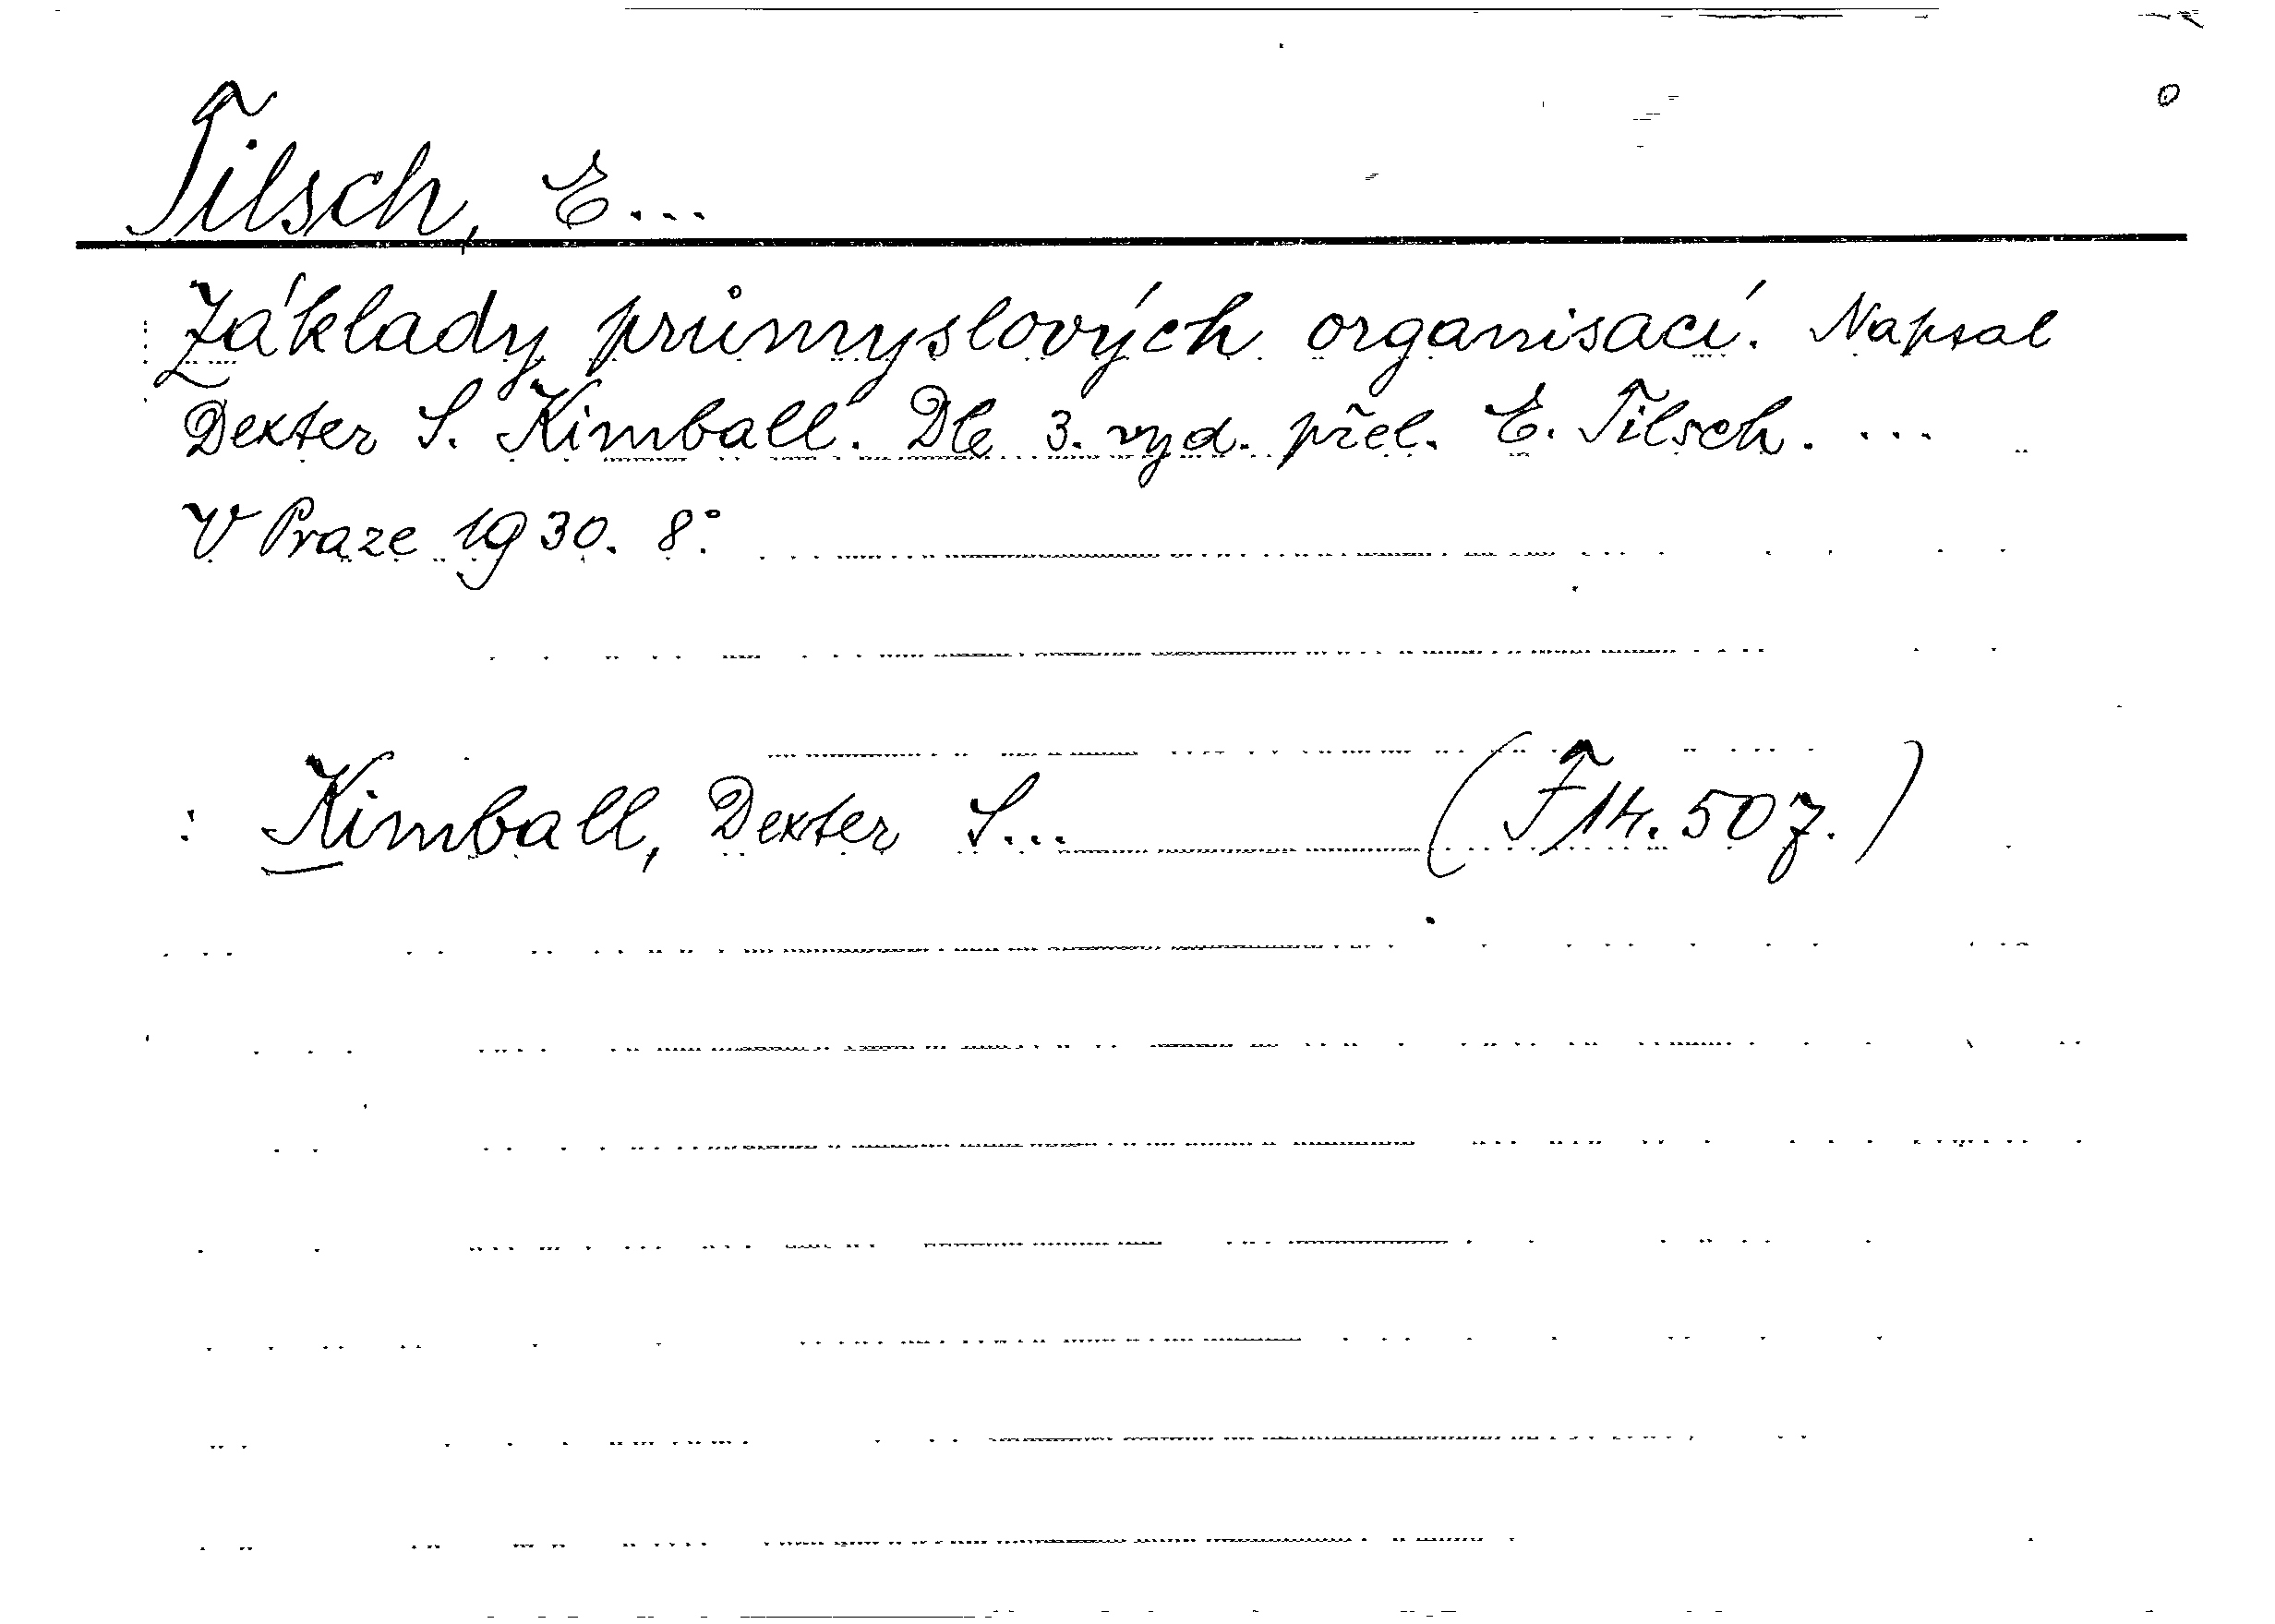 Tilsch, E...
Základy průmyslových organisací. Napsal
Dexter S. Kimball. Dle 3. vyd. přel. E. Tilsch. ...
V Praze 1930. 8°.
: Kimball, Dexter S... (F 14.507.)